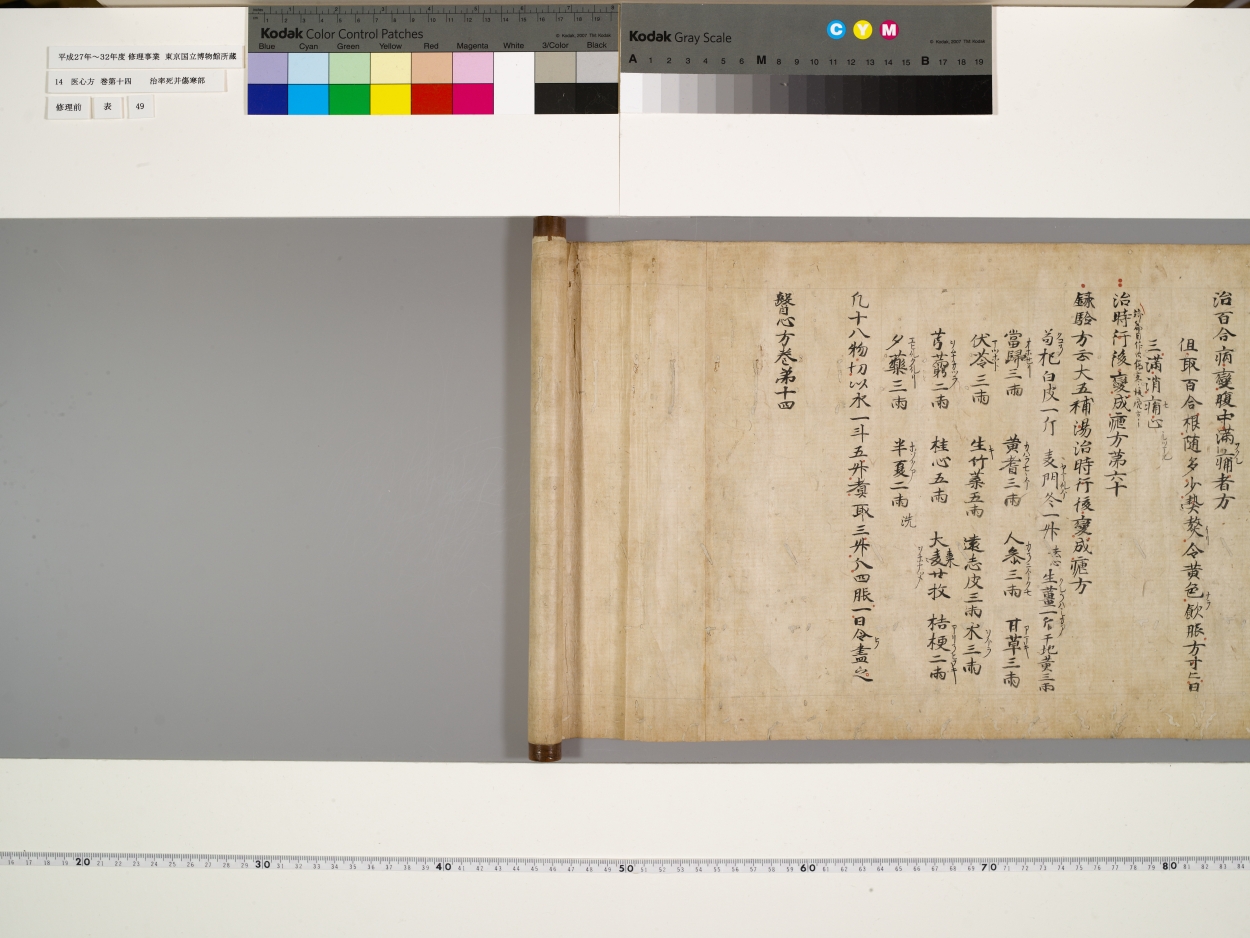 平成27年～32年度 修理事業 東京国立博物館所蔵
14 医心方 巻第十四 治卒死并傷寒部
修理前 表 49
Kodak Color Control Patches
© Kodak, 2007 TM: Kodak
Blue Cyan Green Yellow Red Magenta White 3/Color Black
Kodak Gray Scale
C Y M
© Kodak, 2007 TM: Kodak
A 1 2 3 4 5 6 M 8 9 10 11 12 13 14 15 B 17 18 19
治百合病變腹中滿痛者方
但取百合根随多少熬令黄色飲服方寸匕日
三滿消痛止
治時行後變成瘧方第六十
録驗方云大五補湯治時行後變成瘧方
茍杞白皮一斤 麦門冬一升 去心 生薑一斤 干地黄三兩
當歸三兩 黄耆三兩 人参三兩 甘草三兩
伏苓三兩 生竹葉五兩 遠志皮三兩 朮三兩
芎藭二兩 桂心五兩 大棗廿枚 桔梗二兩
夕藥三兩 半夏二兩 洗
凡十八物切以水一斗五升煮取三升分四服一日令盡之
醫心方巻第十四
20 30 40 50 60 70 80